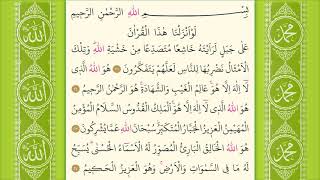 بِسْمِ اللهِ الرَّحْمٰنِ الرَّحِيْمِ
لَوْ اَنْزَلْنَا هٰذَا الْقُرْاٰنَ
عَلٰى جَبَلٍ لَّرَاَيْتَهٗ خَاشِعًا مُّتَصَدِّعًا مِّنْ خَشْيَةِ اللهِ وَتِلْكَ
الْاَمْثَالُ نَضْرِبُهَا لِلنَّاسِ لَعَلَّهُمْ يَتَفَكَّرُوْنَ هُوَ اللهُ الَّذِيْ
لَا اِلٰهَ اِلَّا هُوَ عَالِمُ الْغَيْبِ وَالشَّهَادَةِ هُوَ الرَّحْمٰنُ الرَّحِيْمُ
هُوَ اللهُ الَّذِيْ لَا اِلٰهَ اِلَّا هُوَ اَلْمَلِكُ الْقُدُّوْسُ السَّلَامُ الْمُؤْمِنُ
الْمُهَيْمِنُ الْعَزِيْزُ الْجَبَّارُ الْمُتَكَبِّرُ سُبْحَانَ اللهِ عَمَّا يُشْرِكُوْنَ
هُوَ اللهُ الْخَالِقُ الْبَارِئُ الْمُصَوِّرُ لَهُ الْاَسْمَاءُ الْحُسْنٰى يُسَبِّحُ
لَهٗ مَا فِى السَّمٰوَاتِ وَالْاَرْضِ وَهُوَ الْعَزِيْزُ الْحَكِيْمُ
الله
الله
الله
محمد
محمد
محمد